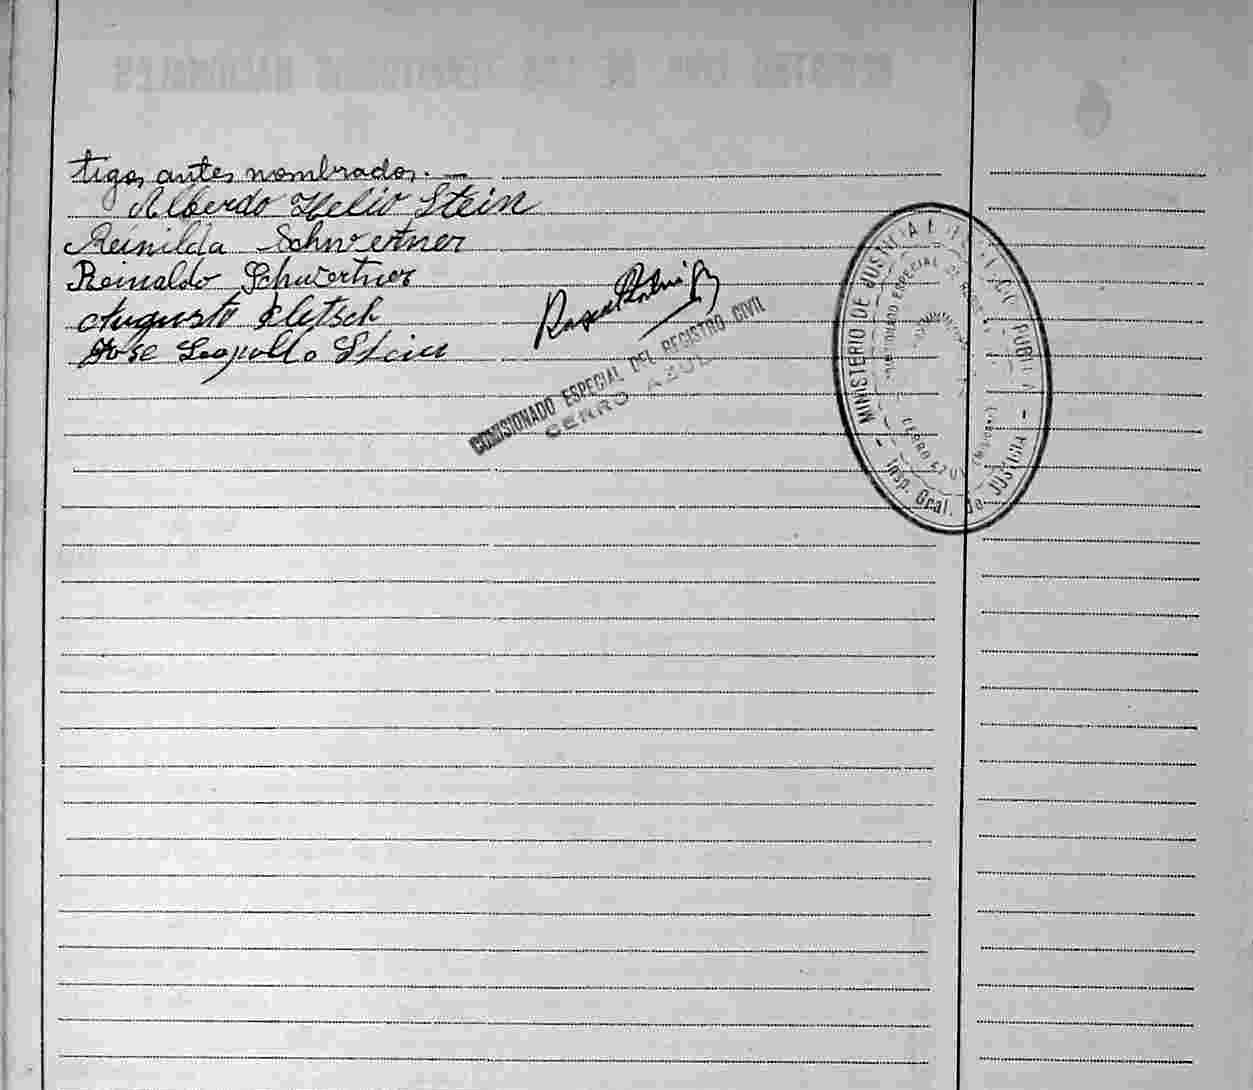 tigos antes nombrados. —
Alberdo Helio Stein
Reinilda Schwertner
Reinaldo Schwertner
Augusto Kletsch
José Leopoldo Stein
COMISIONADO ESPECIAL DEL REGISTRO CIVIL
CERRO AZUL
- MINISTERIO DE JUSTICIA E PUBLICA -
Insp. Gral. de JUSTICIA
COMISIONADO ESPECIAL DE
CERRO AZUL (Misiones)